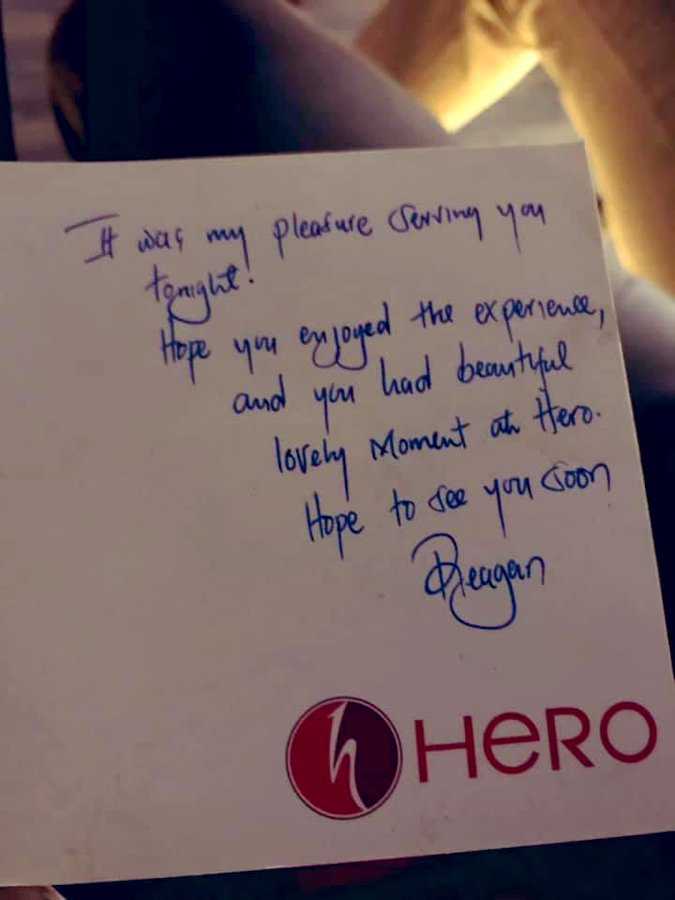 It was my pleasure serving you
tonight!
Hope you enjoyed the experience,
and you had beautiful
lovely Moment at Hero.
Hope to see you soon
Reagan
h HERO